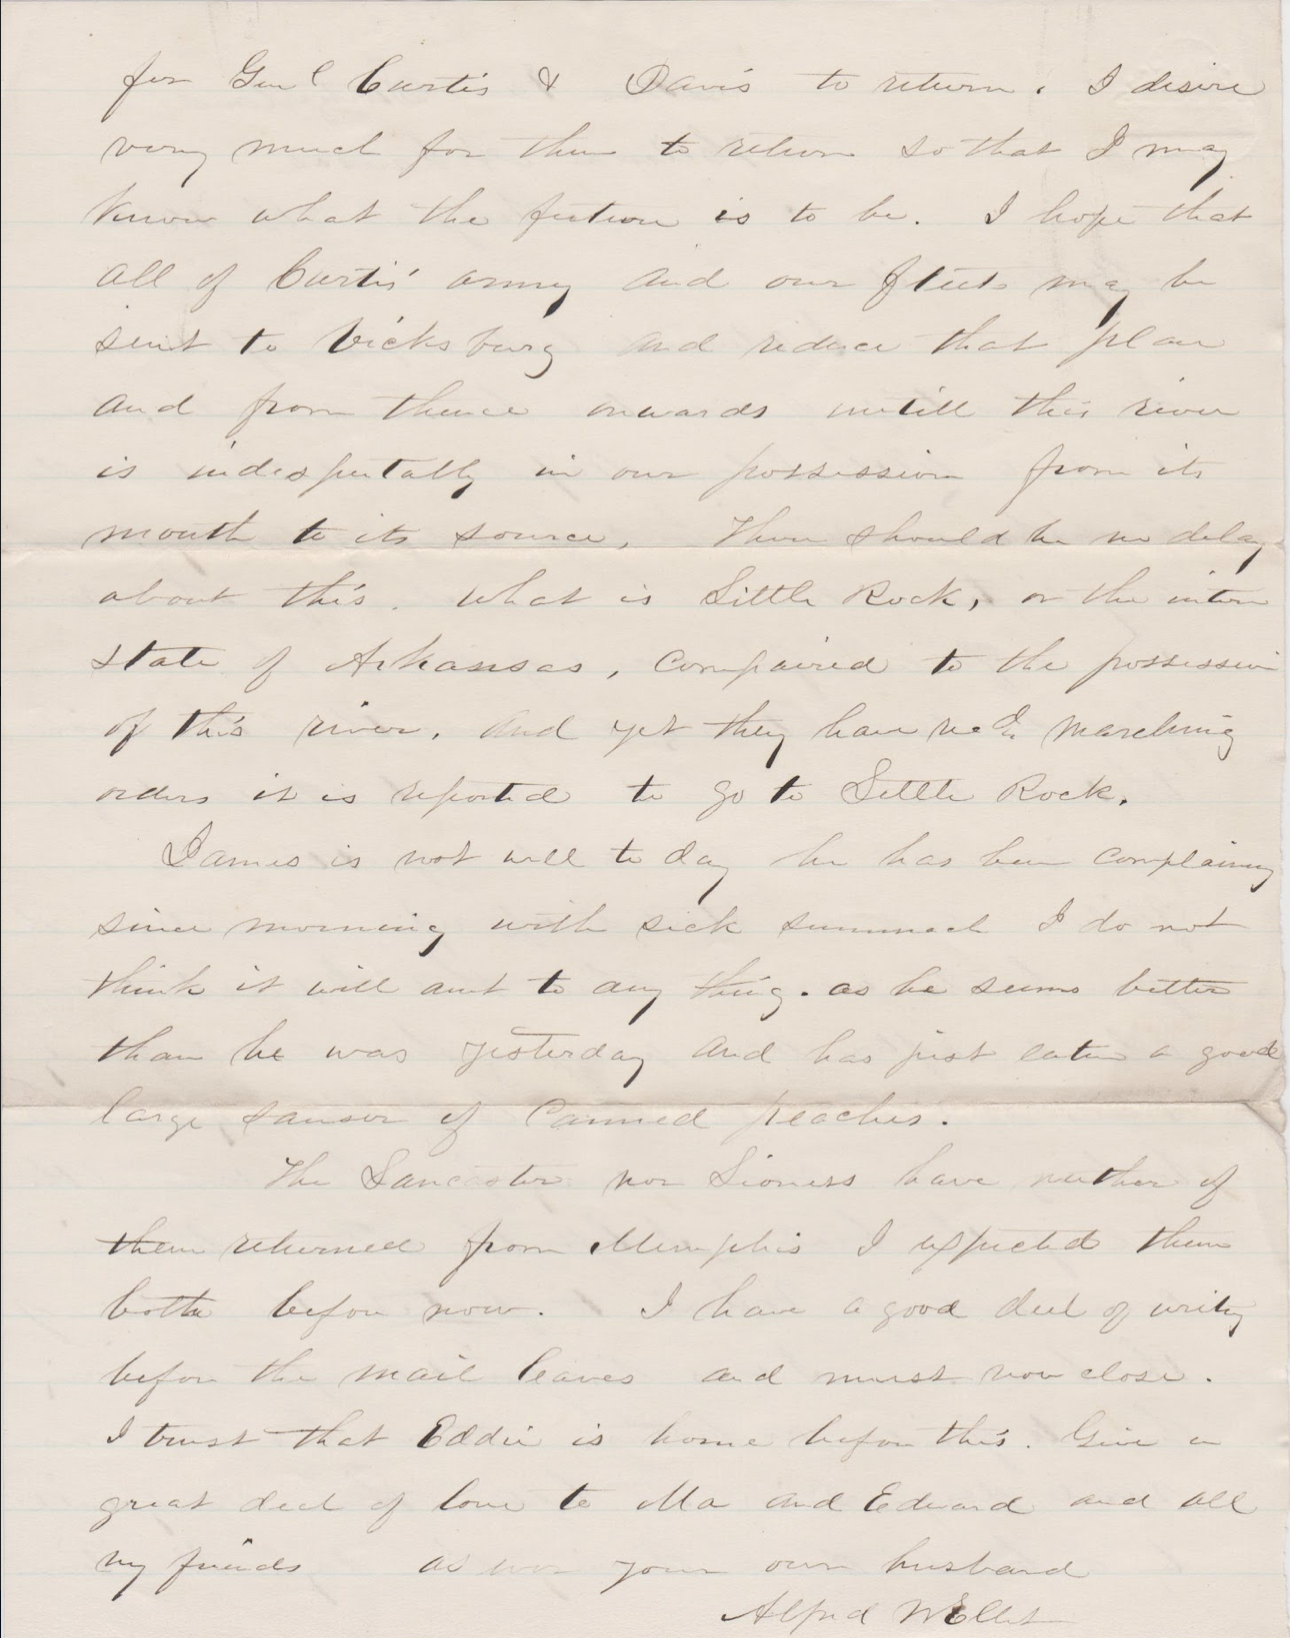 for Genl Curtis & Davis to return. I desire
very much for them to return so that I may
know what the future is to be. I hope that
all of Curtis' army and our fleets may be
sent to Vicksburg and reduce that place
and from thence onwards untill this river
is indesputably in our possession from its
mouth to its source. There should be no delay
about this. What is Little Rock, or the intire
state of Arkansas, compaired to the possession
of this river. and yet they have recd. marching
orders it is reported to go to Little Rock.
James is not well to day he has been complaining
since morning with sick summach I do not
think it will amt to any thing. as he seems better
than he was yesterday and has just eaten a good
large sauser of canned peaches.
The Lancaster nor Lioness have neither of
them returned from Memphis I expected them
both before now. I have a good deel of writing
before the mail leaves and must now close.
I trust that Eddie is home before this. Give a
great deel of love to Ma and Edward and all
my friends as ever your own husband
Alfred W Ellet